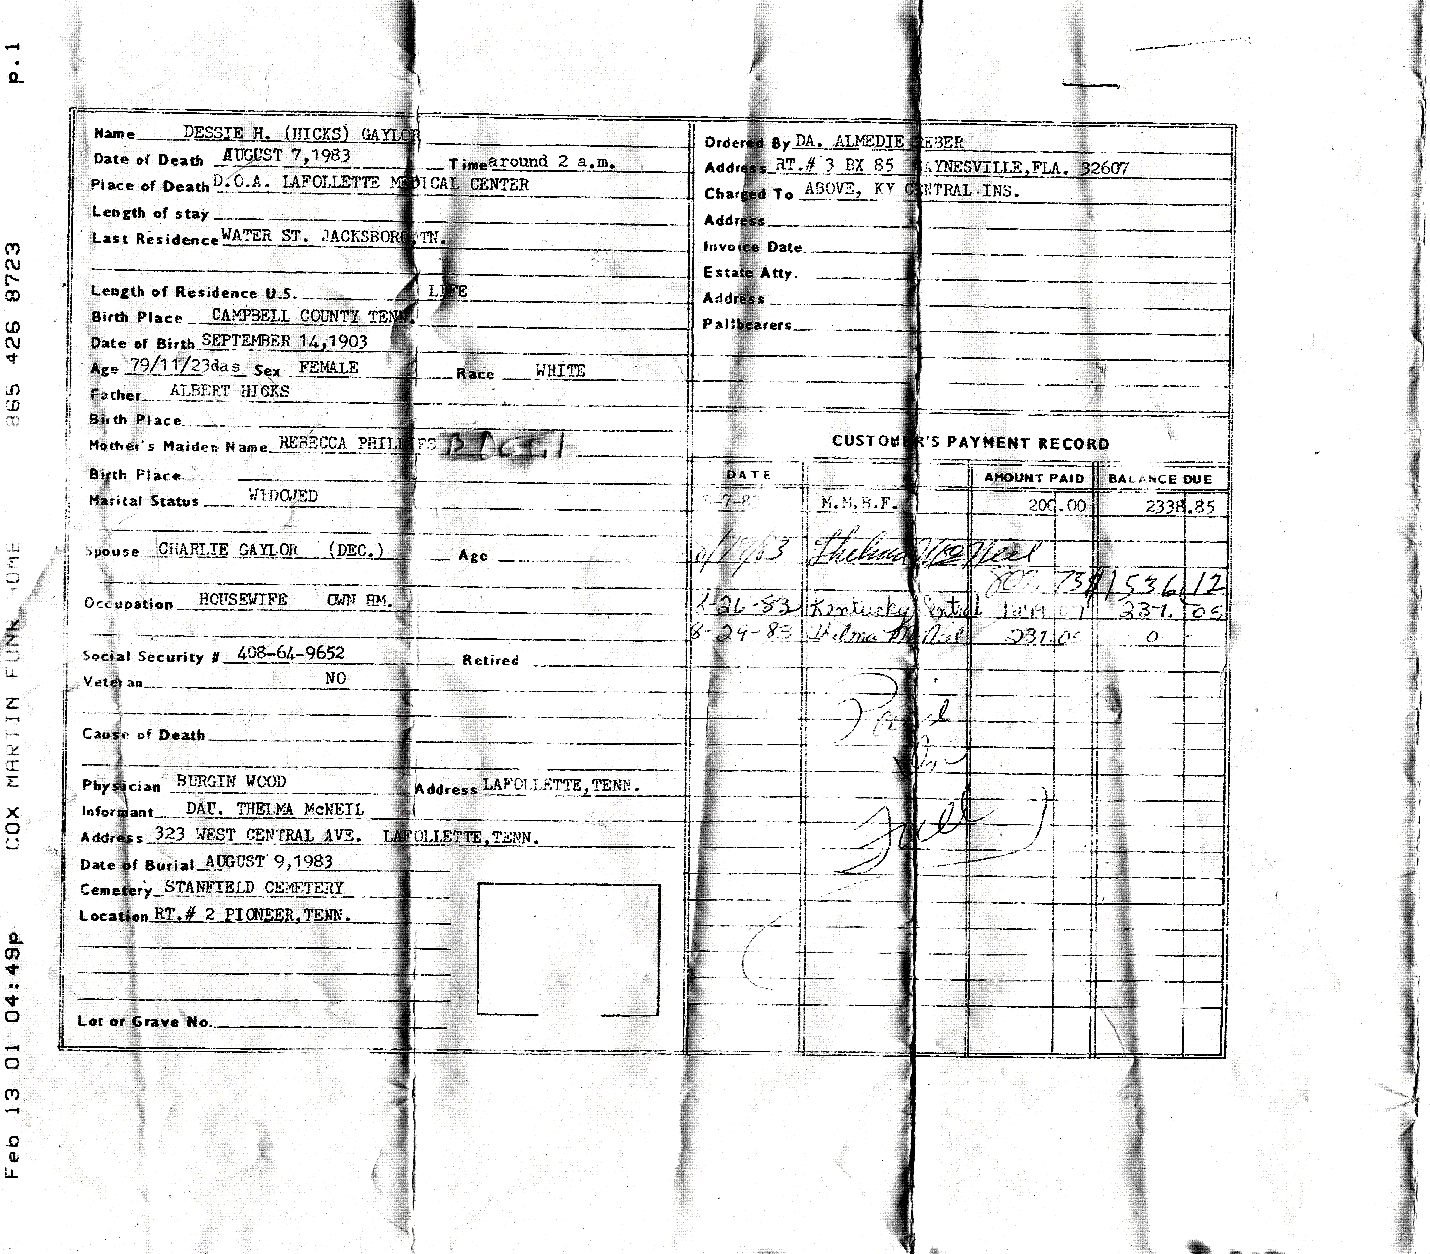 p.1
865 426 8723
COX MARTIN FUN
Feb 13 01 04:49p
Name DESSIE H. (HICKS) GAYLOR
Date of Death AUGUST 7,1983 Time around 2 a.m.
Place of Death D.O.A. LAFOLLETTE MEDICAL CENTER
Length of stay
Last Residence WATER ST. JACKSBORO, TN.
Length of Residence U.S. LIFE
Birth Place CAMPBELL COUNTY TENN.
Date of Birth SEPTEMBER 14,1903
Age 79/11/23das Sex FEMALE Race WHITE
Father ALBERT HICKS
Birth Place
Mother's Maiden Name REBECCA PHILLIPS
Birth Place
Marital Status WIDOWED
Spouse CHARLIE GAYLOR (DEC.) Age
Occupation HOUSEWIFE OWN HM.
Social Security # 408-64-9652 Retired
Veteran NO
Cause of Death
Physician BURGIN WOOD Address LAFOLLETTE,TENN.
Informant DAU. THELMA McNEIL
Address 323 WEST CENTRAL AVE. LAFOLLETTE,TENN.
Date of Burial AUGUST 9,1983
Cemetery STANFIELD CEMETERY
Location RT.# 2 PIONEER,TENN.
Lot or Grave No.
Ordered By DA. ALMEDIE
Address RT.# 3 BX 85 GAYNESVILLE,FLA. 32607
Charged To ABOVE, KY CENTRAL INS.
Address
Invoice Date
Estate Atty.
Address
Pallbearers
CUSTOMER'S PAYMENT RECORD
DATE AMOUNT PAID BALANCE DUE
M.M.B.F. 200.00 2338.85
Thelma McNeil
802.73 $1536.12
8-26-83 Kentucky Central 237.05
8-29-83 Thelma McNeil 237.05 0
Paid
In
Full